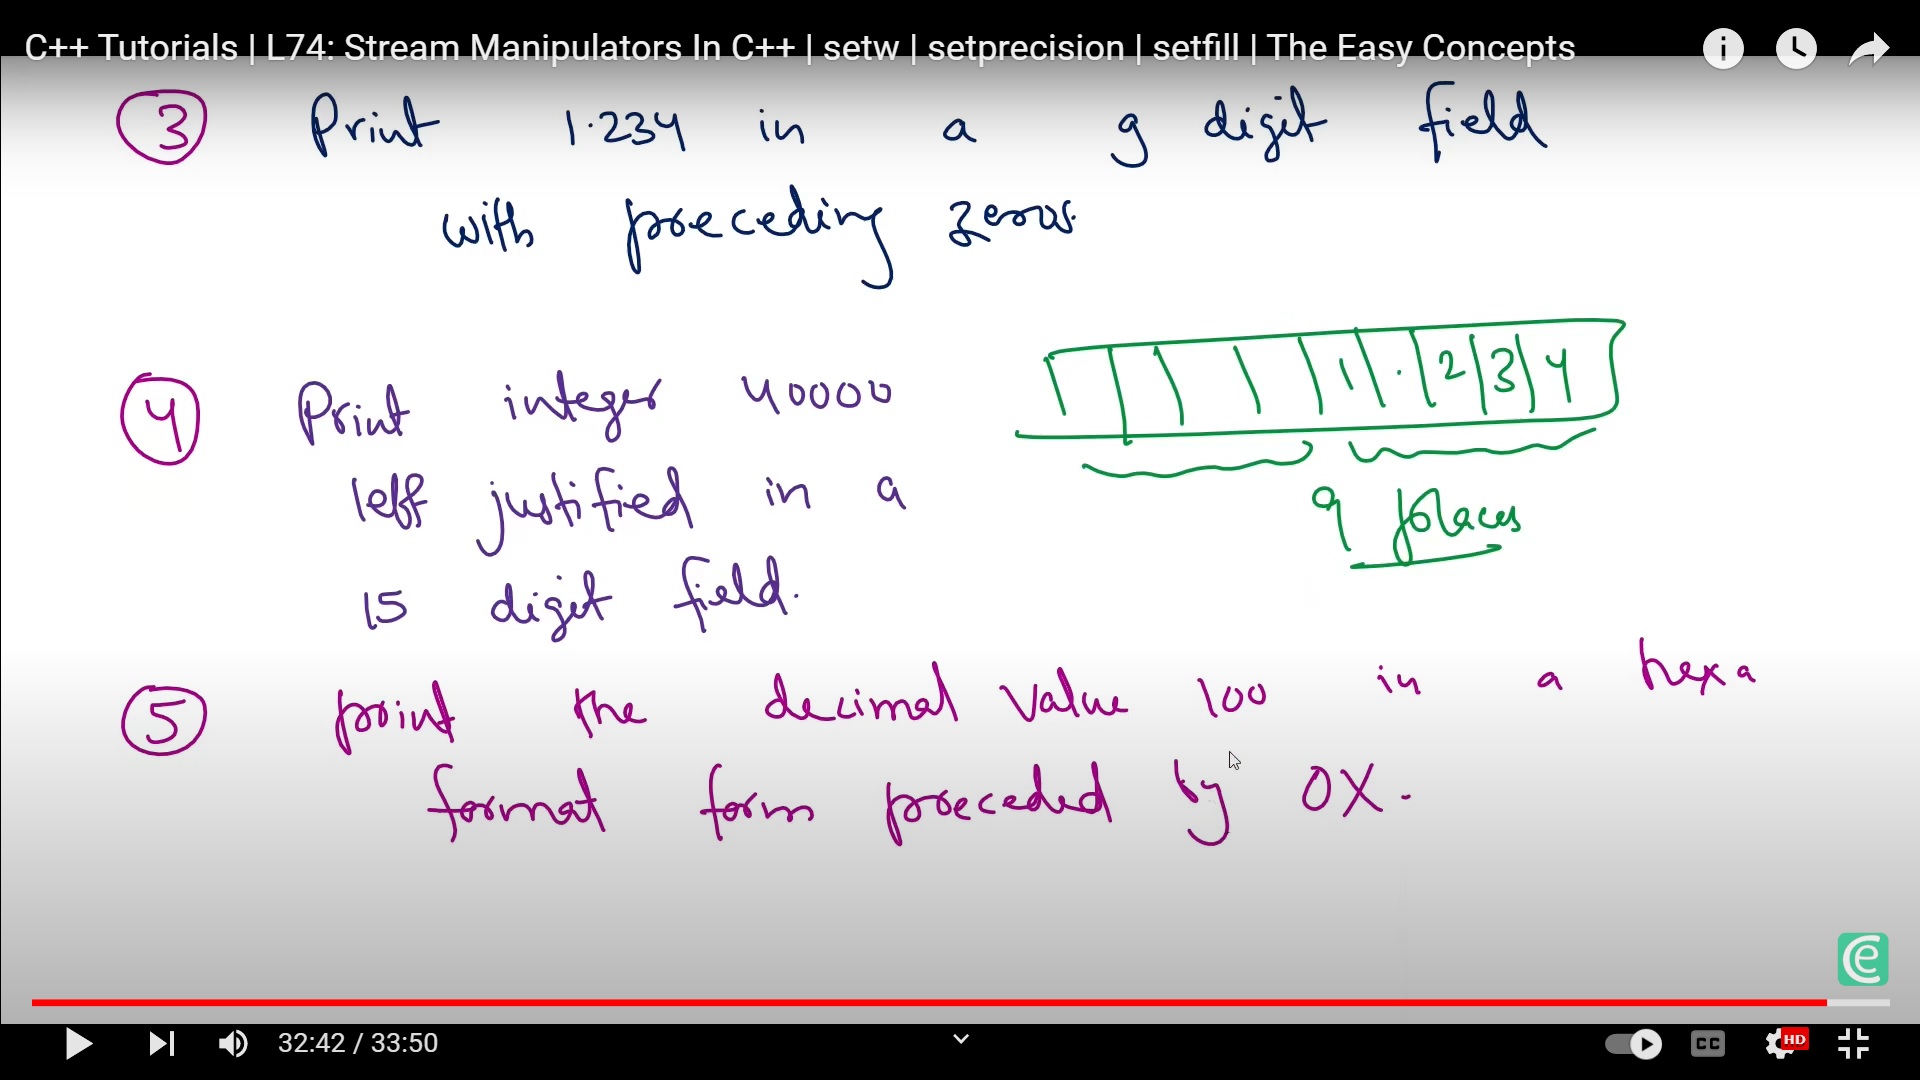 C++ Tutorials | L74: Stream Manipulators In C++ | setw | setprecision | setfill | The Easy Concepts
3 Print 1.234 in a 9 digit field
with preceding zeros.
1 . 2 3 4
9 places
4 Print integer 40000
left justified in a
15 digit field.
5 print the decimal value 100 in a hexa
format form preceded by 0X.
e
32:42 / 33:50
CC
HD